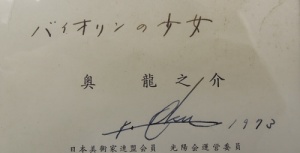 バイオリンの少女
奥 龍之介
1973
日本美術家連盟会員 光陽会運営委員